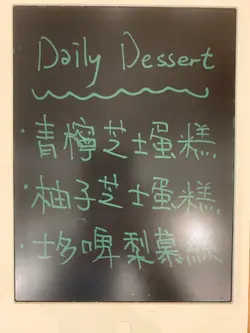 Daily Dessert
· 青檸芝士蛋糕
· 柚子芝士蛋糕
· 士多啤梨慕絲